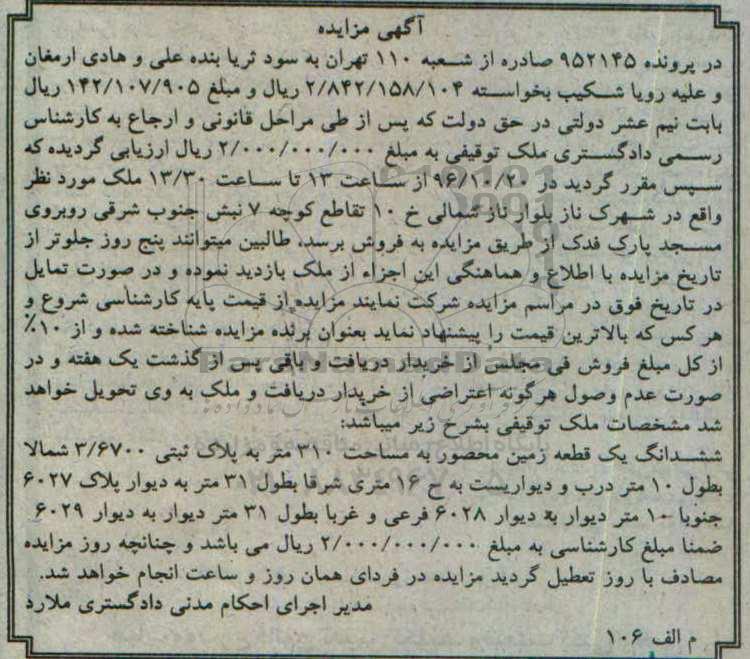 آگهی مزایده
در پرونده ۹۵۲۱۴۵ صادره از شعبه ۱۱۰ تهران به سود ثریا بنده علی و هادی ارمغان
و علیه رویا شکیب بخواسته ۲/۸۴۲/۱۵۸/۱۰۴ ریال و مبلغ ۱۴۲/۱۰۷/۹۰۵ ریال
بابت نیم عشر دولتی در حق دولت که پس از طی مراحل قانونی و ارجاع به کارشناس
رسمی دادگستری ملک توقیفی به مبلغ ۲/۰۰۰/۰۰۰/۰۰۰ ریال ارزیابی گردیده که
سپس مقرر گردید در ۹۶/۱۰/۲۰ از ساعت ۱۳ تا ساعت ۱۳/۳۰ ملک مورد نظر
واقع در شهرک ناز بلوار ناز شمالی خ ۱۰ تقاطع کوچه ۷ نبش جنوب شرقی روبروی
مسجد پارک فدک از طریق مزایده به فروش برسد، طالبین میتوانند پنج روز جلوتر از
تاریخ مزایده با اطلاع و هماهنگی این اجراء از ملک بازدید نموده و در صورت تمایل
در تاریخ فوق در مراسم مزایده شرکت نمایند مزایده از قیمت پایه کارشناسی شروع و
هر کس که بالاترین قیمت را پیشنهاد نماید بعنوان برنده مزایده شناخته شده و از ۱۰٪
از کل مبلغ فروش فی مجلس از خریدار دریافت و باقی پس از گذشت یک هفته و در
صورت عدم وصول هرگونه اعتراضی از خریدار دریافت و ملک به وی تحویل خواهد
شد مشخصات ملک توقیفی بشرح زیر میباشد:
ششدانگ یک قطعه زمین محصور به مساحت ۳۱۰ متر به پلاک ثبتی ۳/۶۷۰۰ شمالا
بطول ۱۰ متر درب و دیواریست به خ ۱۶ متری شرقا بطول ۳۱ متر به دیوار پلاک ۶۰۲۷
جنوبا ۱۰ متر دیوار به دیوار ۶۰۲۸ فرعی و غربا بطول ۳۱ متر دیوار به دیوار ۶۰۲۹
ضمنا مبلغ کارشناسی به مبلغ ۲/۰۰۰/۰۰۰/۰۰۰ ریال می باشد و چنانچه روز مزایده
مصادف با روز تعطیل گردید مزایده در فردای همان روز و ساعت انجام خواهد شد.
مدیر اجرای احکام مدنی دادگستری ملارد
م الف ۱۰۶
ParsNamadData